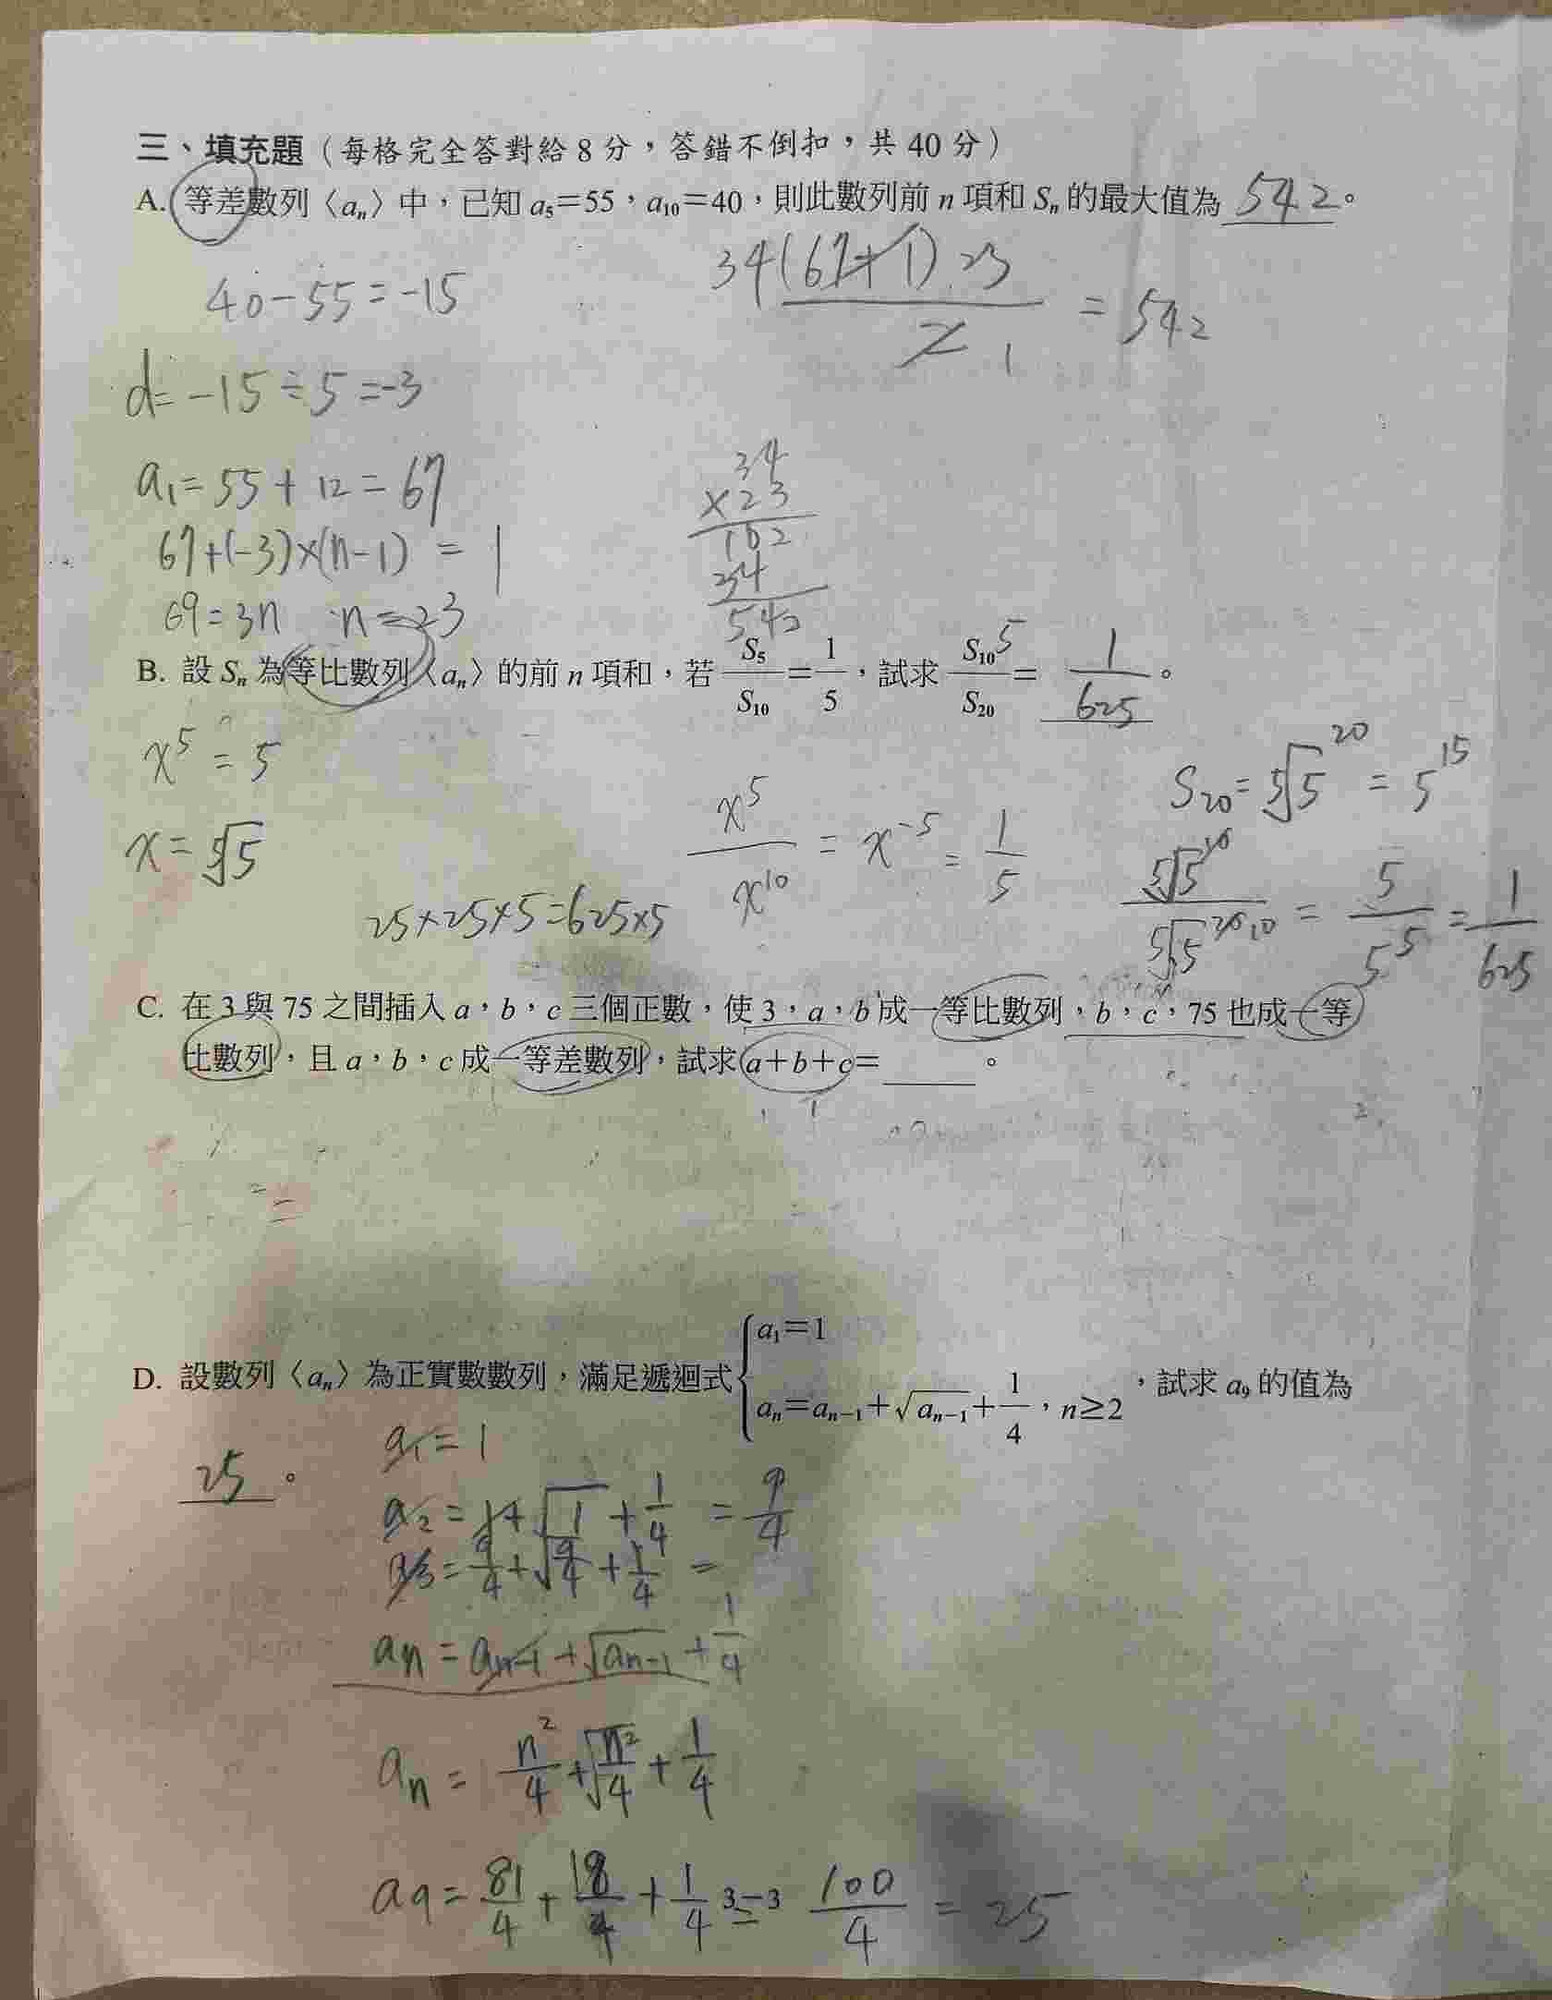 三、填充題（每格完全答對給 8 分，答錯不倒扣，共 40 分）
A. 等差數列〈aₙ〉中，已知 a₅＝55，a₁₀＝40，則此數列前 n 項和 Sₙ 的最大值為 542。
40-55=-15
34(67+1).23 / 2 1 = 542
d=-15÷5=-3
a₁=55+12=67
67+(-3)×(n-1)=1
69=3n n=23
34
×23
102
34
542
B. 設 Sₙ 為等比數列〈aₙ〉的前 n 項和，若 S₅/S₁₀＝1/5，試求 S₁₀/S₂₀＝ 1/625。
5
x⁵=5
x=⁵√5
x⁵/x¹⁰ = x⁻⁵ = 1/5
25×25×5=625×5
S₂₀=⁵√5²⁰=5¹⁵
⁵√5¹⁰/⁵√5²⁰ 10 = 5/5⁵ = 1/625
C. 在 3 與 75 之間插入 a，b，c 三個正數，使 3，a，b 成一等比數列，b，c，75 也成一等
比數列，且 a，b，c 成一等差數列，試求 a＋b＋c＝ 。
D. 設數列〈aₙ〉為正實數數列，滿足遞迴式 { a₁＝1
aₙ＝aₙ₋₁＋√aₙ₋₁＋1/4，n≥2 ，試求 a₉ 的值為
25。
a₁=1
a₂=1+√1+1/4=9/4
a₃=9/4+√9/4+1/4=
aₙ=aₙ₋₁+√aₙ₋₁+1/4
aₙ=n²/4+√n²/4+1/4
a₉=81/4+18/4+1/4=100/4=25
3－3